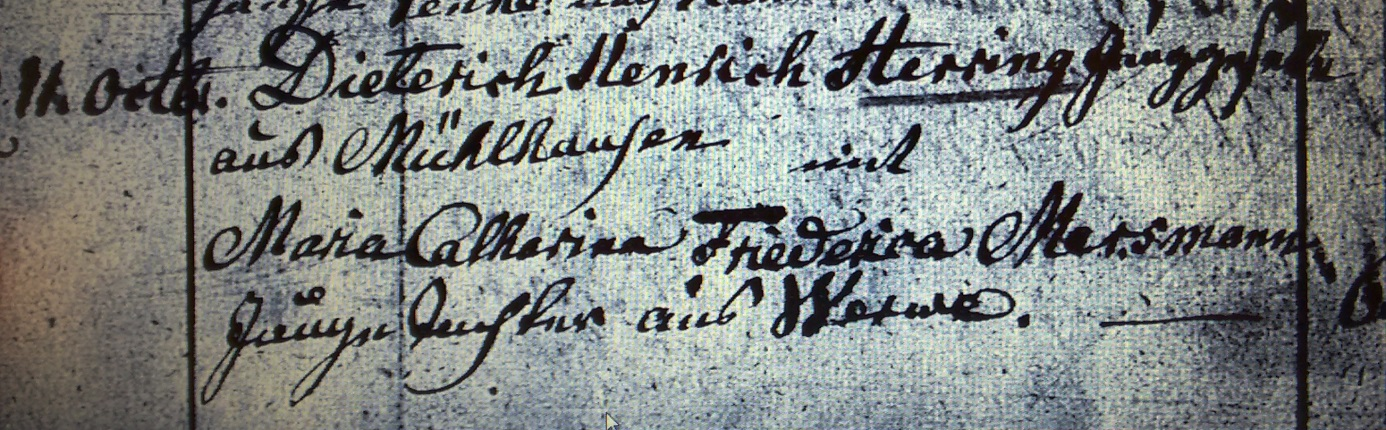 Octb. Dieterich Henrich Herring Junggeselle
aus Mühlhausen mit
Maria Catharina Friederica Marsmann
Junge Tochter aus Werne.